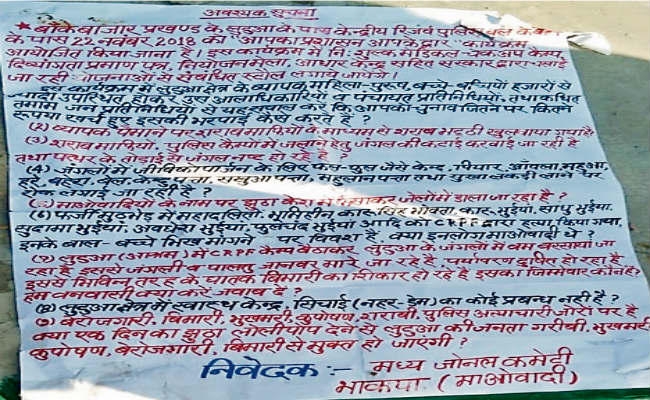 अवश्यक सूचना
* बांकेबाजार प्रखण्ड के लुटुआ के पास केन्द्रीय रिजर्व पुलिस बल कैम्प
के पास 22 नवंबर 2018 को आपका प्रशासन आपके द्वार कार्यक्रम
आयोजित किया जा रहा है। इस कार्यक्रम में नि:शुल्क मेडिकल चेकअप कैम्प
दिव्यांगता प्रमाण पत्र, नियोजन मेला, आधार केन्द्र सहित सरकार द्वारा चलाई
जा रही योजनाओं से संबंधित स्टॉल लगाये जायेंगे।
इस कार्यक्रम में लुटुआ क्षेत्र के व्यापक महिला-पुरूष, बच्चे-बच्चियों हजारों से
उपस्थित होकर उस आलाधिकारियों व पंचायत प्रतिनिधियों, तथाकथित
तमाम जन प्रतिनिधियों से यह सवाल करें कि आपको चुनाव जितने पर कितने
रूपया खर्च हुए इसकी भरपाई कैसे करते हैं ?
(2) व्यापक पैमाने पर शराब माफियों के माध्यम से शराब भट्ठी खुलवाया गया है
(3) शराब माफियों, पुलिस कैम्पों में जलाने हेतु जंगल की कटाई करवाई जा रही है
तथा पत्थर के तोड़ाई से जंगल नष्ट हो रहे हैं ?
(4) जंगलों में जीविकोपार्जन के लिए फल-फूल जैसे केन्द, पीयार, आँवला, महुआ,
हरे, बहेरा, बेल, तथा सुखा लकड़ी लाने पर
रोक लगाई जा रही है ?
(5) माओवादियों के नाम पर झूठा केश में फंसाकर जेलों में डाला जा रहा है ?
(6) फर्जी मुठभेड़ में महादलितों, भूमिहीन कारू सिंह भोक्ता, कारू भुईयाँ, साधु भुईया
सुदामा भुईया, अवधेश भुईया, फुलचंद भुईयाँ आदि को CRPF द्वारा हत्या किया गया,
इनके बाल-बच्चे भिख मांगने पर विवश हैं, क्या इनलोग माओवादी थे ?
(7) लुटुआ (असुराइन) में CRPF कैम्प बैठाकर लुटुआ के जंगलों में बम बरसाया जा
रहा है इससे जंगली व पालतु जानवर मारे जा रहे हैं, पर्यावरण दुषित हो रहा है
इससे विभिन्न तरह के घातक बिमारी का शिकार हो रहे हैं इसका जिम्मेवार कौन है?
हम वनवासी क्या करें जवाब दें ?
(8) लुटुआ क्षेत्र में स्वास्थ्य केन्द्र, सिंचाई (नहर-डैम) का कोई प्रबन्ध नहीं है ?
9) बेरोजगारी, बिमारी, भुखमरी, कुपोषण, शराबी, पुलिस अत्याचारी जोरों पर है
क्या एक दिन का झूठा लॉलीपॉप देने से लुटुआ की जनता गरीबी, भुखमरी,
कुपोषण, बेरोजगारी, बिमारी से मुक्त हो जाएंगी ?
निवेदक :- मध्य जोनल कमेटी
भाकपा (माओवादी)